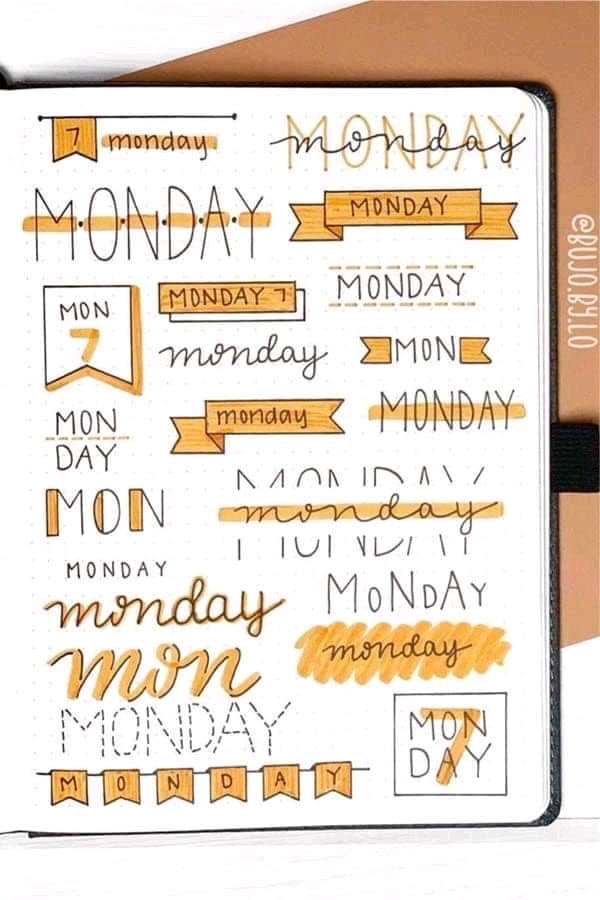 7 monday
MONDAY
monday
MONDAY
MONDAY
MON
7
MONDAY 7
MONDAY
monday
MON
MON
DAY
monday
MONDAY
MON
MONDAY
monday
MONDAY
MONDAY
monday
monday
mon
MONDAY
MON
DAY
7
MONDAY
@BUJO.BY.LO